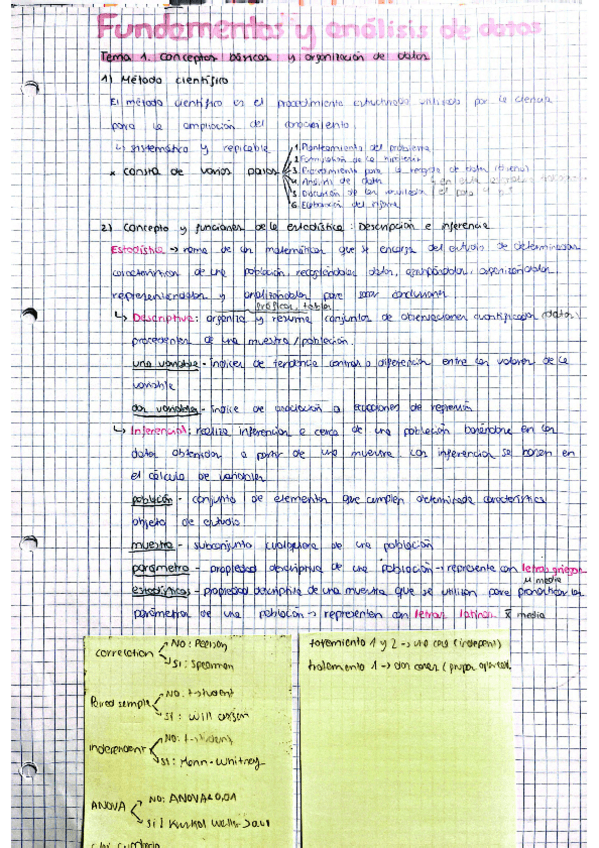 Fundamentos y análisis de datos
Tema 1. Conceptos básicos y organización de datos
1) Método científico
El método científico es el procedimiento estructurado utilizado por la ciencia
para la ampliación del conocimiento.
↳ sistemático y replicable
* consta de varios pasos
1. Planteamiento del problema
2. Formulación de la hipótesis
3. Procedimiento para la recogida de datos (diseño)
4. Análisis de datos
5. Discusión de los resultados
6. Elaboración del informe
2) Concepto y funciones de la estadística: Descripción e inferencia
Estadística → rama de las matemáticas que se encarga del estudio de determinadas
características de una población, recogiéndolas datos, agrupándolos, organizándolos,
representándolos y analizándolos para sacar conclusiones.
gráficos, tablas
↳ Descriptiva: organiza y resume conjuntos de observaciones cuantificadas (datos)
procedentes de una muestra/población.
una variable - índices de tendencia central o diferencian entre los valores de la
variable
dos variables - índice de asociación o ecuaciones de regresión
↳ Inferencial: realiza inferencias a cerca de una población basándose en los
datos obtenidos a partir de una muestra. Las inferencias se basan en
el cálculo de variables
población - conjunto de elementos que cumplen determinada característica
objeto de estudio
muestra - subconjunto cualquiera de una población
parámetro - propiedad descriptiva de una población → representa con letras griegas
μ media
estadísticos - propiedad descriptiva de una muestra que se utilizan para pronosticar los
parámetros de una población → representan con letras latinas x̄ media
correlation
No: Pearson
Si: Spearman
Paired sample
No: t-student
Si: Will coxson
independent
No: t-student
Si: Mann-Whitney
ANOVA
No: ANOVA
Si:
tratamiento 1 y 2 → una cosa (independ)
tratamiento 1 → dos cosas